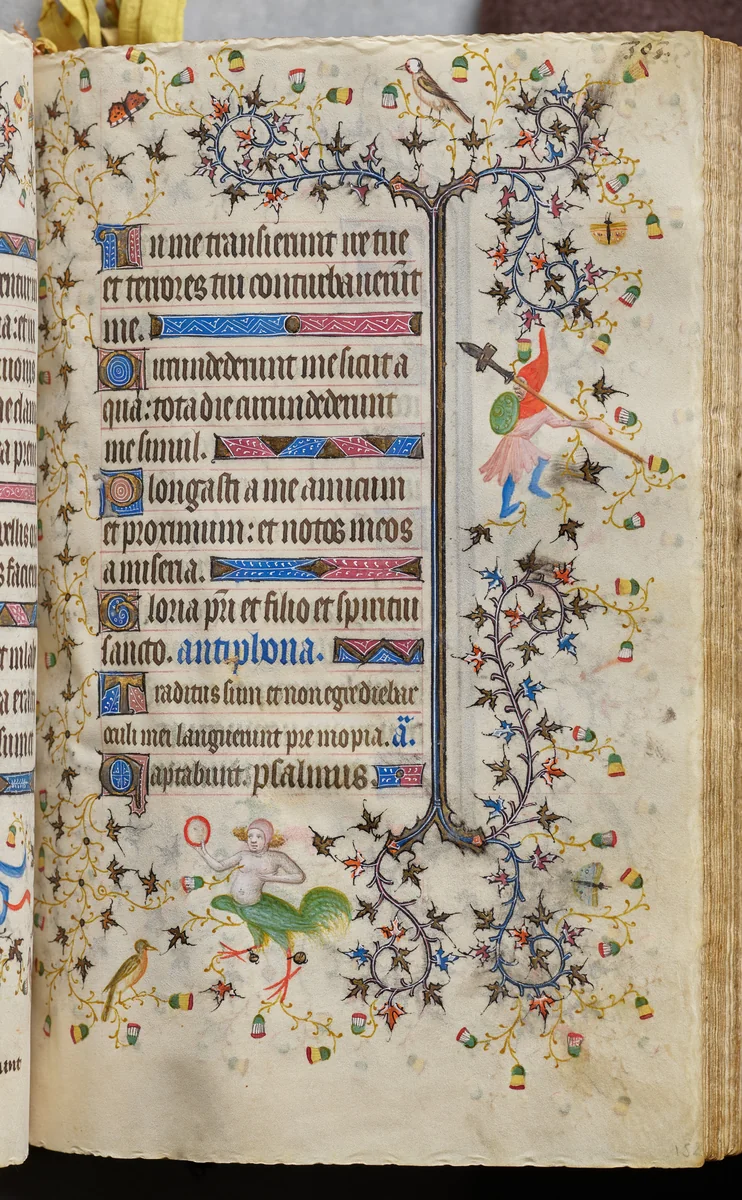 304.
In me transierunt ire tue
et terrores tui conturbauerūt
me.
Circundederunt me sicut a
qua: tota die circundederunt
me simul.
Elongasti a me amicum
et proximum: et notos meos
a miseria.
Gloria pr̄i et filio et spiritui
sancto. antiphona.
Traditus sum et non egrediebar
oculi mei languerunt pre inopia. ā.
Captabunt. psalmus.
152